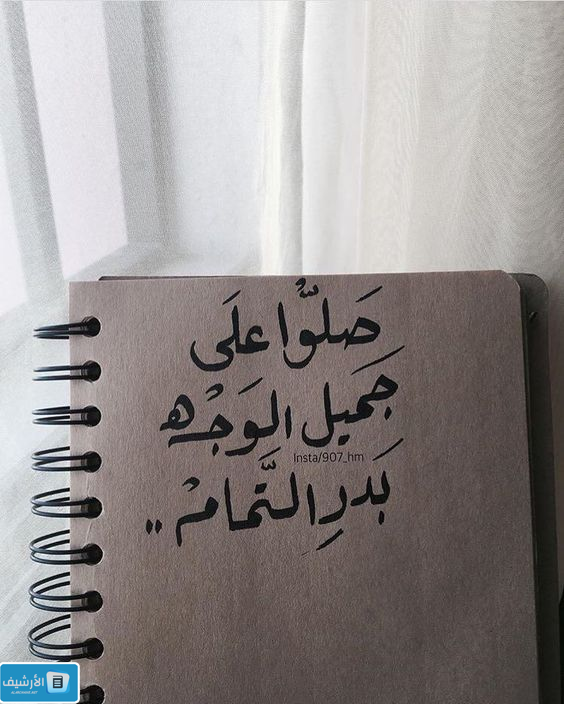 صَلُّوا عَلَى
جَمَيل الوَجْه
Insta/907_hm
بَدرِ التَّمامْ ..
الأرشيف